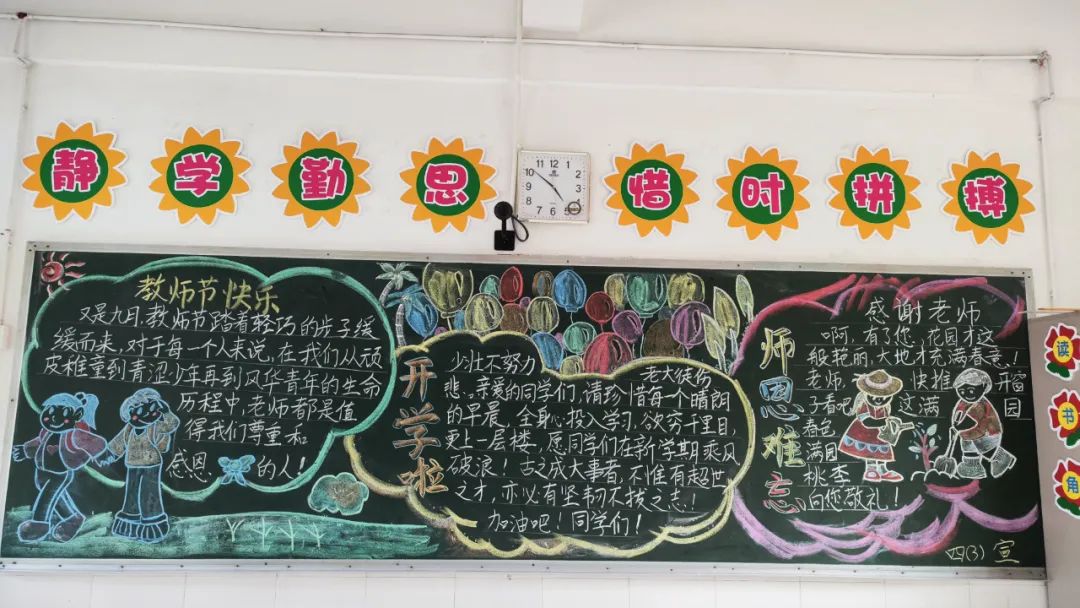 静学勤思 惜时拼搏
11 12 1
10 2
9 3
8 4
7 6
教师节快乐
又是九月,教师节踏着轻巧的步子缓
缓而来,对于每一个人来说,在我们从顽
皮稚童到青涩少年再到风华青年的生命
历程中,老师都是值
得我们尊重和
感恩的人!
开学啦
少壮不努力
老大徒伤
悲。亲爱的同学们,请珍惜每一个晴阴
的早晨,全身心投入学习,欲穷千里目,
更上一层楼,愿同学们在新学期乘风
破浪!古之成大事者,不惟有超世
之才,亦必有坚韧不拔之志!
加油吧!同学们!
师恩难忘
感谢老师
啊,有了您,花园才这
般艳丽,大地才充满春意!
老师,快推开窗
子看吧,这满园
春色,
满园
桃李,
向您敬礼!
四(3)宣
读
书
角